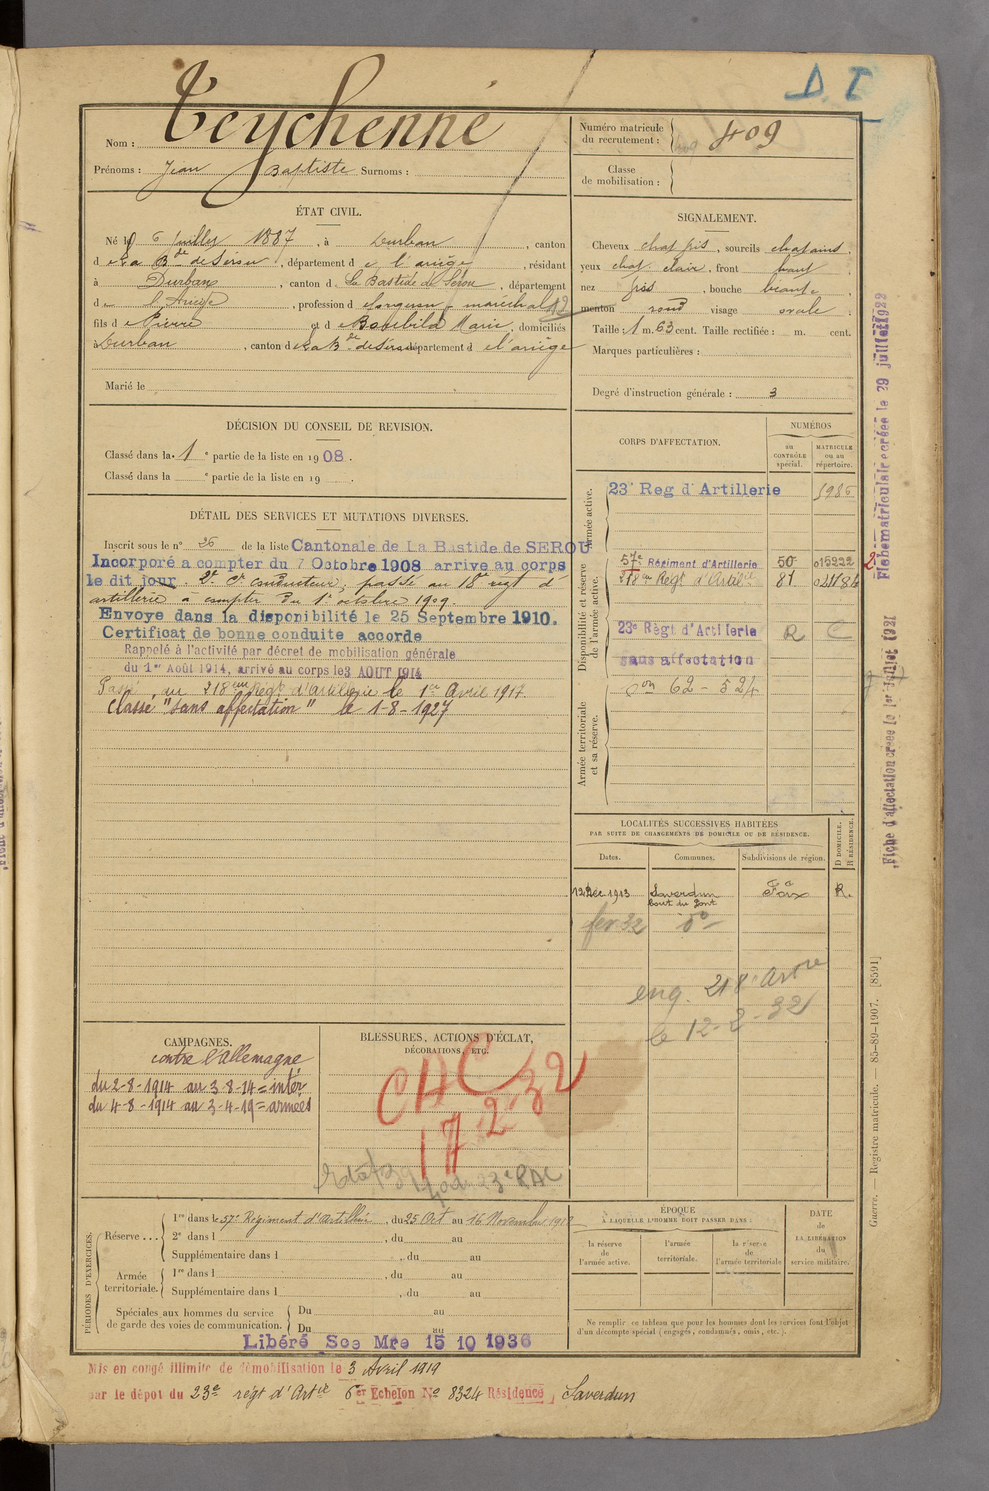 D. I
Nom : Teychenné
Prénoms : Jean Baptiste Surnoms :
Numéro matricule du recrutement : 409
Classe de mobilisation :
ÉTAT CIVIL.
Né le 6 juillet 1887, à Durban, canton
de La Bde de Serou, département de l'ariège, résidant
à Durban, canton de La Bastide de Sérou, département
de l'Ariège, profession de forgeron maréchal 12
fils de Pierre et de Marie, domiciliés
à Durban, canton de La Bde de Serou département de l'ariège
Marié le
SIGNALEMENT.
Cheveux chat, sourcils chatains,
yeux chat. clair, front haut
nez, bouche
menton rond visage ovale.
Taille : 1 m. 63 cent. Taille rectifiée : m. cent.
Marques particulières :
Degré d'instruction générale : 3
DÉCISION DU CONSEIL DE REVISION.
Classé dans la 1e partie de la liste en 1908.
Classé dans la e partie de la liste en 19
DÉTAIL DES SERVICES ET MUTATIONS DIVERSES.
Inscrit sous le n° 26 de la liste Cantonale de La Bastide de SEROU
Incorporé a compter du 7 Octobre 1908 arrive au corps
le dit jour. 2e Cr conducteur, passé au 18e régt d'
artillerie à compter du 1er octobre 1909.
Envoye dans la disponibilité le 25 Septembre 1910.
Certificat de bonne conduite accorde
Rappelé à l'activité par décret de mobilisation générale
du 1er Août 1914, arrivé au corps le 3 AOUT 1914
Passé au 218eme Regt d'artillerie le 1er Avril 1917
Classé "sans affectation" le 1-8-1927
CORPS D'AFFECTATION.
NUMÉROS
au CONTRÔLE spécial.
MATRICULE ou au répertoire.
Armée active.
23e Reg d'Artillerie
Disponibilité et réserve de l'armée active.
57e Régiment d'Artillerie 50 015222
218eme Regt d'Artillie 81 02118
23e Règt d'Artillerie R C
sans affectation
62 - 524
Armée territoriale et sa réserve.
LOCALITÉS SUCCESSIVES HABITÉES
PAR SUITE DE CHANGEMENTS DE DOMICILE OU DE RÉSIDENCE.
Dates.
Communes.
Subdivisions de région.
D DOMICILE.
R RÉSIDENCE.
12 Déc 1913 Saverdun Foix R.
bout du Pont
fev 32 do
eng. 218e Artrie
le 12-2-32
CAMPAGNES.
contre l'allemagne
du 2-8-1914 au 3-8-14 = intér
du 4-8-1914 au 3-4-19 = armées
BLESSURES, ACTIONS D'ÉCLAT,
DÉCORATIONS, ETC.
CAC
17-2-32
23e RAC
PÉRIODES D'EXERCICES.
Réserve...
1re dans le 57e Régiment d'Artillerie, du 25 Oct au 16 Novembre 191
2e dans l, du au
Supplémentaire dans l, du au
Armée territoriale.
1re dans l, du au
Supplémentaire dans l, du au
Spéciales aux hommes du service de garde des voies de communication.
Du au
Du au
Libéré Sce Mre 15 10 1936
ÉPOQUE
À LAQUELLE L'HOMME DOIT PASSER DANS :
la réserve de l'armée active.
l'armée territoriale.
la réserve de l'armée territoriale
DATE de LA LIBÉRATION du service militaire.
Ne remplir ce tableau que pour les hommes dont les services font l'objet
d'un décompte spécial (engagés, condamnés, omis, etc.).
Mis en congé illimité de démobilisation le 3 Avril 1919
par le dépot du 23e régt d'Artie 6er Echelon No 8324 Résidence, Saverdun
Fiche matriculaire créée le 29 juillet 1922
Fiche d'affectation créée le 1er Juillet 1921
Guerre. — Registre matricule. — 85-89-1907. [8591]